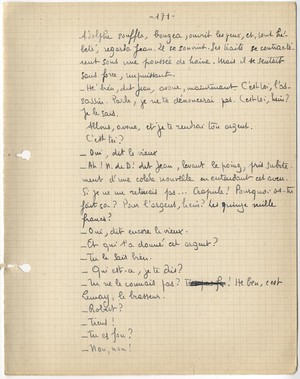 -171-
Adolphe souffla, bougea, ouvrit les yeux, et, tout hé-
bété, regarda Jean. Il se souvint. Ses traits se contractè-
rent sous une poussée de haine. Mais il se sentait
sans force, impuissant.
_ Hé bien, dit Jean, avoue, maintenant C'est toi, l'as-
sassin. Parle, je ne te dénoncerai pas. C'est toi, hein?
Je le sais.
Allons, avoue, et je te rendrai ton argent.
C'est toi?
_ Oui, dit le vieux
_ Ah! N. de D.! dit Jean, levant le poing, pris subite-
ment d'une colère nouvelle en entendant cet aveu.
Si je ne me retenais pas... Crapule! Pourquoi as-tu
fait ça? Pour l'argent, hein? Les quinze mille
francs?
_ Oui, dit encore le vieux.
_ Et qui t'a donné cet argent?
_ Tu le sais bien.
_ Qui est-ce, je te dis?
_ Tu ne le connais pas? ! Hé bien, c'est
Lemay, le brasseur.
_ Robert?
_ Tiens!
_ Tu es fou?
_ Non, non!